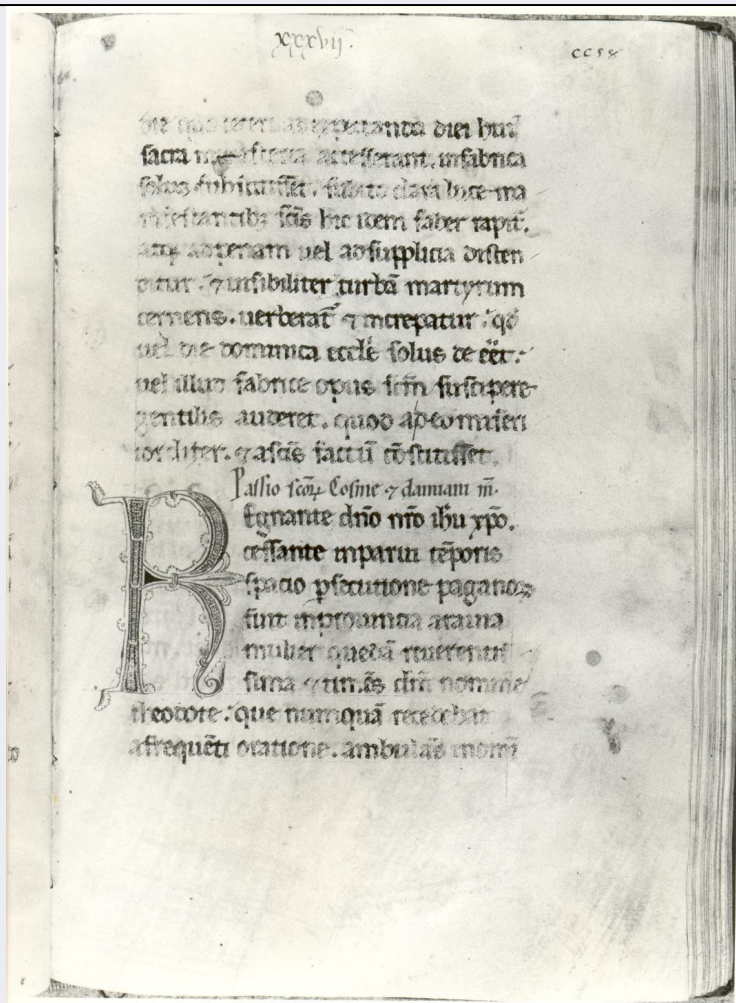 xxxvij.
cc58
die diei hui᷒
sacra accesserant. infabrica
solus subito clara luce ma
nifestantibꝫ sc̄is hic idem faber rapit᷑.
adpenam uel adsupplicia disten
ditur. ⁊ inuisibiliter turbā martyrum
cernens. uerberat᷑ ⁊ increpatur. qđ
uel die dominica eccl̄e solus deēēt.
uel illud fabrice opus suscipere
gentilis auderet. quod
. ⁊ asc̄is factū cōstitisset.
Passio sc̄oꝝ Cosme ⁊ damiani m̄.
Regnante dn̄o nr̄o ih̄u xp̄o.
cessante inparui tēporis
spacio ꝑsecutione paganoꝝ
fuit inprouincia
mulier quedā reuerentis
sima ⁊ dn̄m nomine
theodote. que numquā recedebat
afrequēti oratione. ambulās